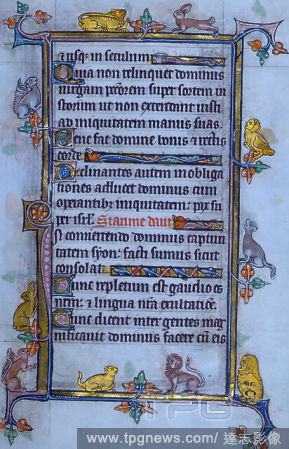 et usq; in seculum
Quia non relinquet dominus
virgam peccatorum super sortem iu
storum ut non extendant iusti
ad iniquitatem manus suas.
Benefac domine bonis et rectis
corde
Declinantes autem in obliga
tiones adducet dominus cum
operantibus iniquitatem: pax su
per isrl.
In convertendo dominus captivi
tatem syon: facti sumus sicut
consolati
Tunc repletum est gaudio os
nrm: et lingua nra exultatione.
Tunc dicent inter gentes mag
nificavit dominus facere cum eis
TPG
www.tpgnews.com / 達志影像